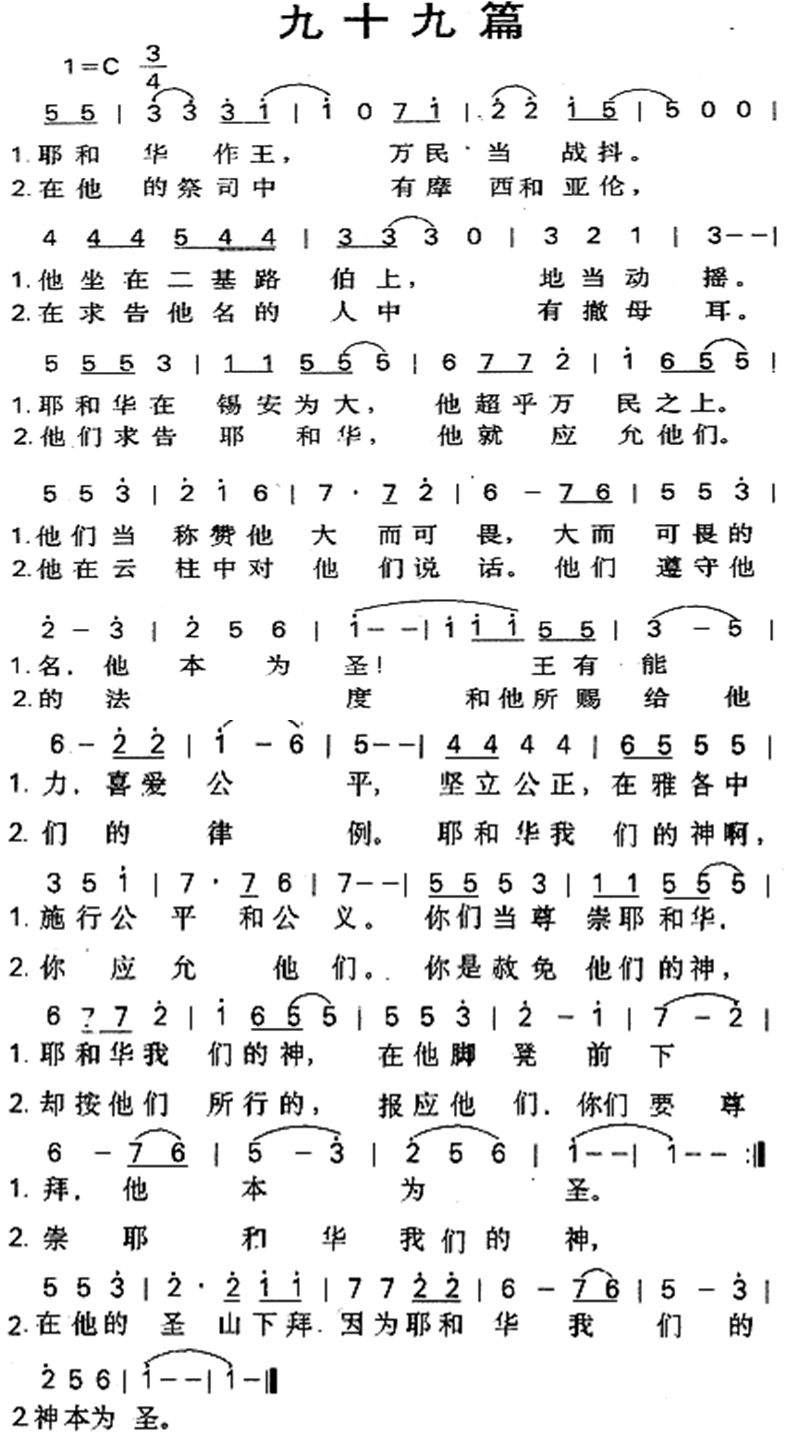 九十九篇
1=C 3/4
5 5 | 3̇ 3̇ 3̇ 1̇ | 1̇ 0 7 1̇ | 2̇ 2̇ 1̇ 5 | 5 0 0 |
1.耶和 华 作王， 万民 当 战抖。
2.在他 的祭司中 有摩 西和亚伦，
4 4 4 5 4 4 | 3 3 3 0 | 3 2 1 | 3 - - |
1.他坐在二基路 伯上， 地当动 摇。
2.在求告他名的 人中 有撒母 耳。
5 5 5 3 | 1 1 5 5 5 | 6 7 7 2̇ | 1̇ 6 5 5 |
1.耶和华在 锡安为大， 他超乎万 民之上。
2.他们求告 耶 和华， 他就 应 允他们。
5 5 3̇ | 2̇ 1̇ 6 | 7 · 7 2̇ | 6 - 7 6 | 5 5 3̇ |
1.他们当 称赞他 大 而可 畏， 大而 可畏的
2.他在云 柱中对 他 们说 话。 他们 遵守他
2̇ - 3̇ | 2̇ 5 6 | 1̇ - - | 1̇ 1̇ 1̇ 5 5 | 3 - 5 |
1.名. 他 本 为 圣! 王有 能
2.的 法 度 和他所赐给 他
6 - 2̇ 2̇ | 1̇ - 6 | 5 - - | 4 4 4 4 | 6 5 5 5 |
1.力. 喜爱 公 平， 坚立公正，在雅各中
2.们 的 律 例。 耶和华我 们的神啊，
3 5 1̇ | 7 · 7 6 | 7 - - | 5 5 5 3 | 1 1 5 5 5 |
1.施行公 平 和公 义。 你们当尊 崇耶和华.
2.你 应 允 他 们。 你是赦免 他们的神，
6 7 7 2̇ | 1̇ 6 5 5 | 5 5 3̇ | 2̇ - 1̇ | 7 - 2̇ |
1.耶和华我 们的神， 在他脚 凳 前 下
2.却按他们 所行的， 报应他 们. 你们 要 尊
6 - 7 6 | 5 - 3̇ | 2̇ 5 6 | 1̇ - - | 1̇ - - :‖
1.拜. 他 本 为 圣。
2.崇 耶 和 华 我们的 神，
5 5 3̇ | 2̇ · 2̇ 1̇ 1̇ | 7 7 2̇ 2̇ | 6 - 7 6 | 5 - 3̇ |
2.在他的 圣 山下拜. 因为耶和 华 我 们 的
2̇ 5 6 | 1̇ - - | 1̇ - ‖
2神本为 圣。